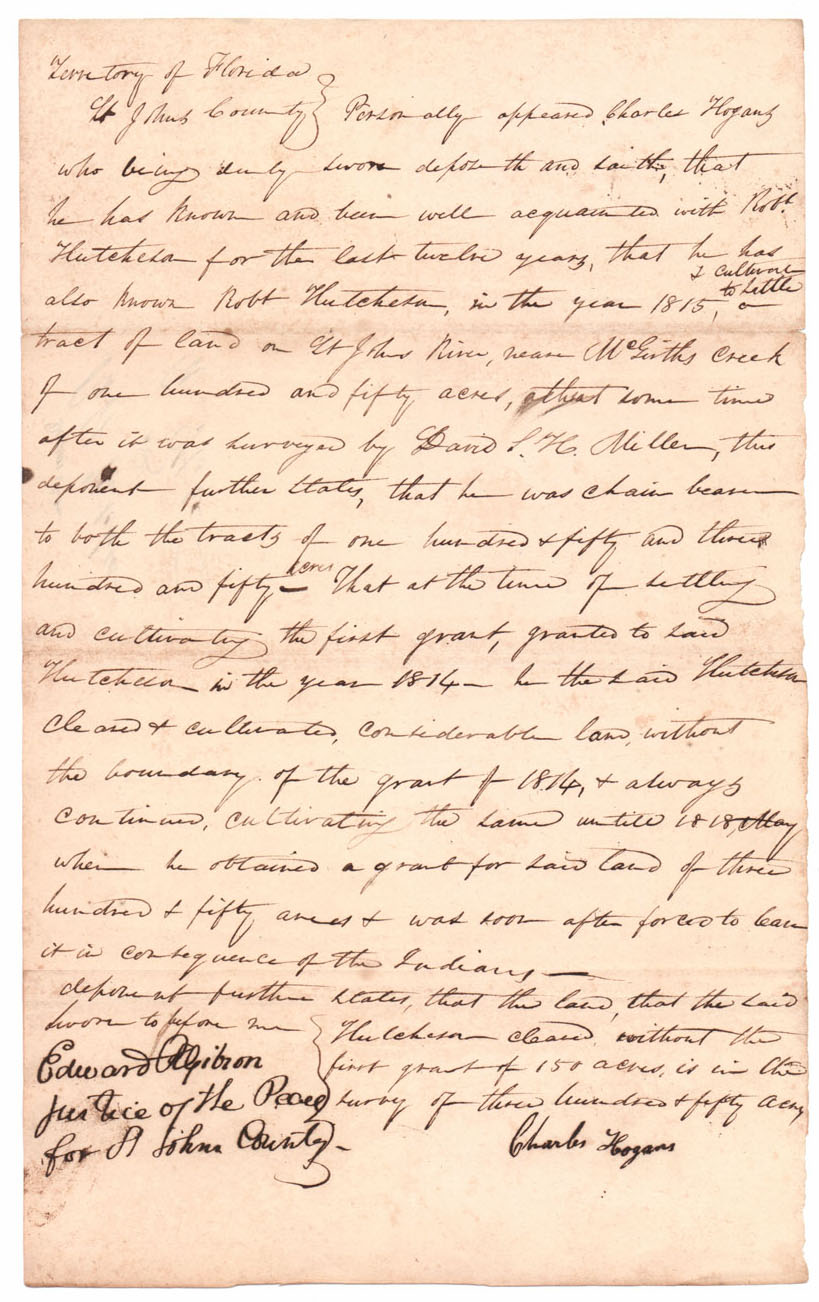 Territory of Florida
St Johns County } Personally appeared Charles Hogans
who being duly sworn deposeth and saith, that
he has Known and been well acquainted with Robt
Hutcheson for the last twelve years, that he has
& cultivate
to settle
also known Robt Hutcheson, in the year 1815, a
tract of land on St Johns River, near McGirths Creek
of one hundred and fifty acres, some time
after it was surveyed by David S. H. Miller, this
deponent further States, that he was chain bearer
to both the tracts of one hundred & fifty and three
acres
hundred and fifty – That at the time of settling
and cultivating the first grant, granted to said
Hutcheson in the year 1814 – he the said Hutcheson
cleared & cultivated, considerable land, without
the boundary of the grant of 1814, & always
continued, cultivating the same untill 1818, May
when he obtained a grant for said land of three
hundred & fifty acres & was soon after forced to leave
it in consequence of the Indians –
deponent further states, that the land, that the said
Sworn to before me } Hutcheson cleared without the
Edward R Gibson first grant of 150 acres, is in the
Justice of the Peace survey of three hundred & fifty acres
for St Johns County – Charles Hogans